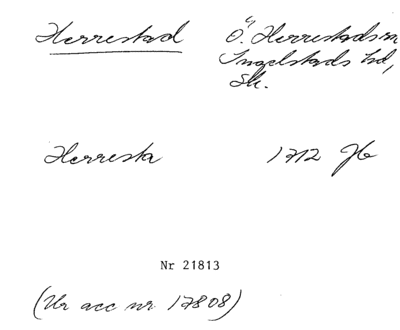 Herrestad Ö. Herrestads sn
Ingelstads hd,
Sk.
Herresta 1712 Jb
Nr 21813
(Ur acc nr 17808)